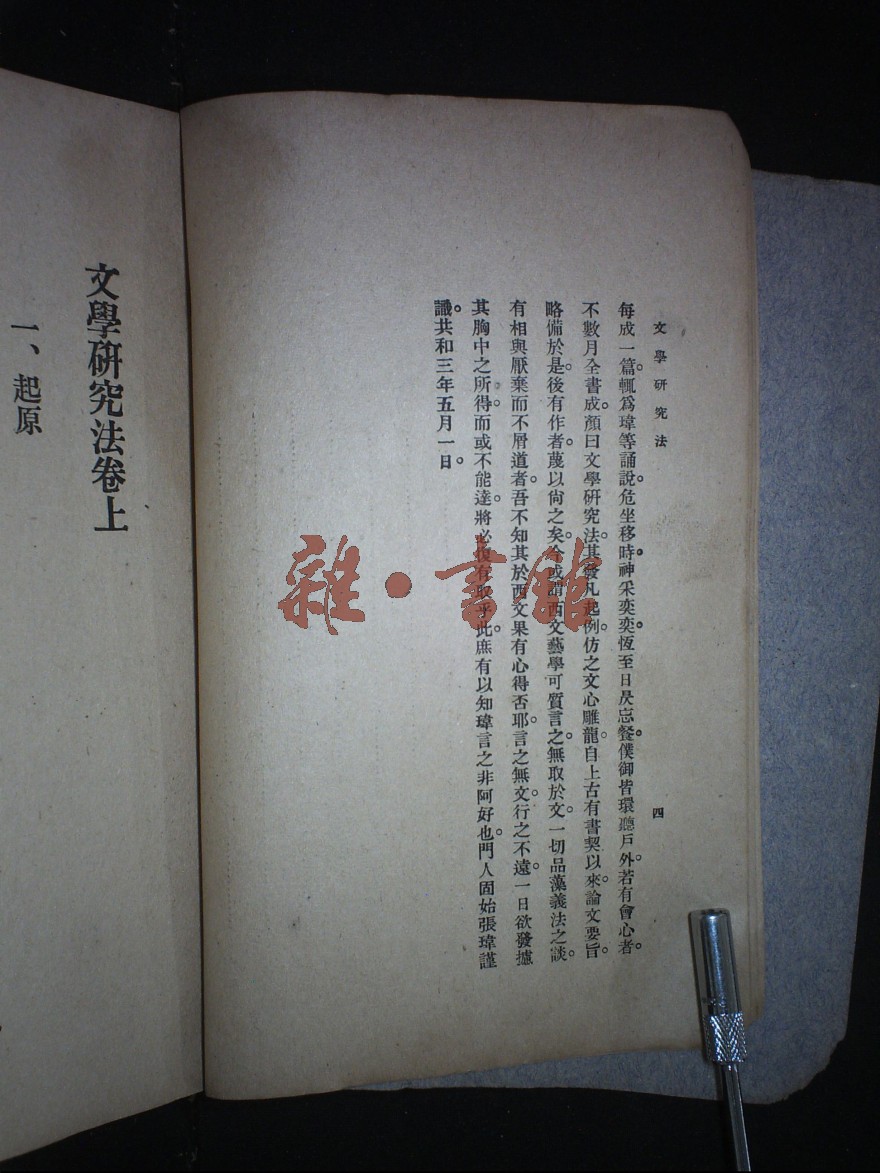 文學研究法
四
每成一篇。輒爲瑋等誦說。危坐移時。神采奕奕。恆至日昃忘餐。僕御皆環聽戶外。若有會心者。
不數月全書成。顏曰文學研究法。其發凡起例。仿之文心雕龍。自上古有書契以來。論文要旨。
略備於是。後有作者。蔑以尙之矣。今或謂西文藝學可質言之。無取於文。一切品藻義法之談。
有相與厭棄而不屑道者。吾不知其於西文果有心得否耶。言之無文。行之不遠。一日欲發攄
其胸中之所得。而或不能達。將必復有取乎此。庶有以知瑋言之非阿好也。門人固始張瑋謹
識。共和三年五月一日。
文學研究法卷上
一、起原
雜·書館